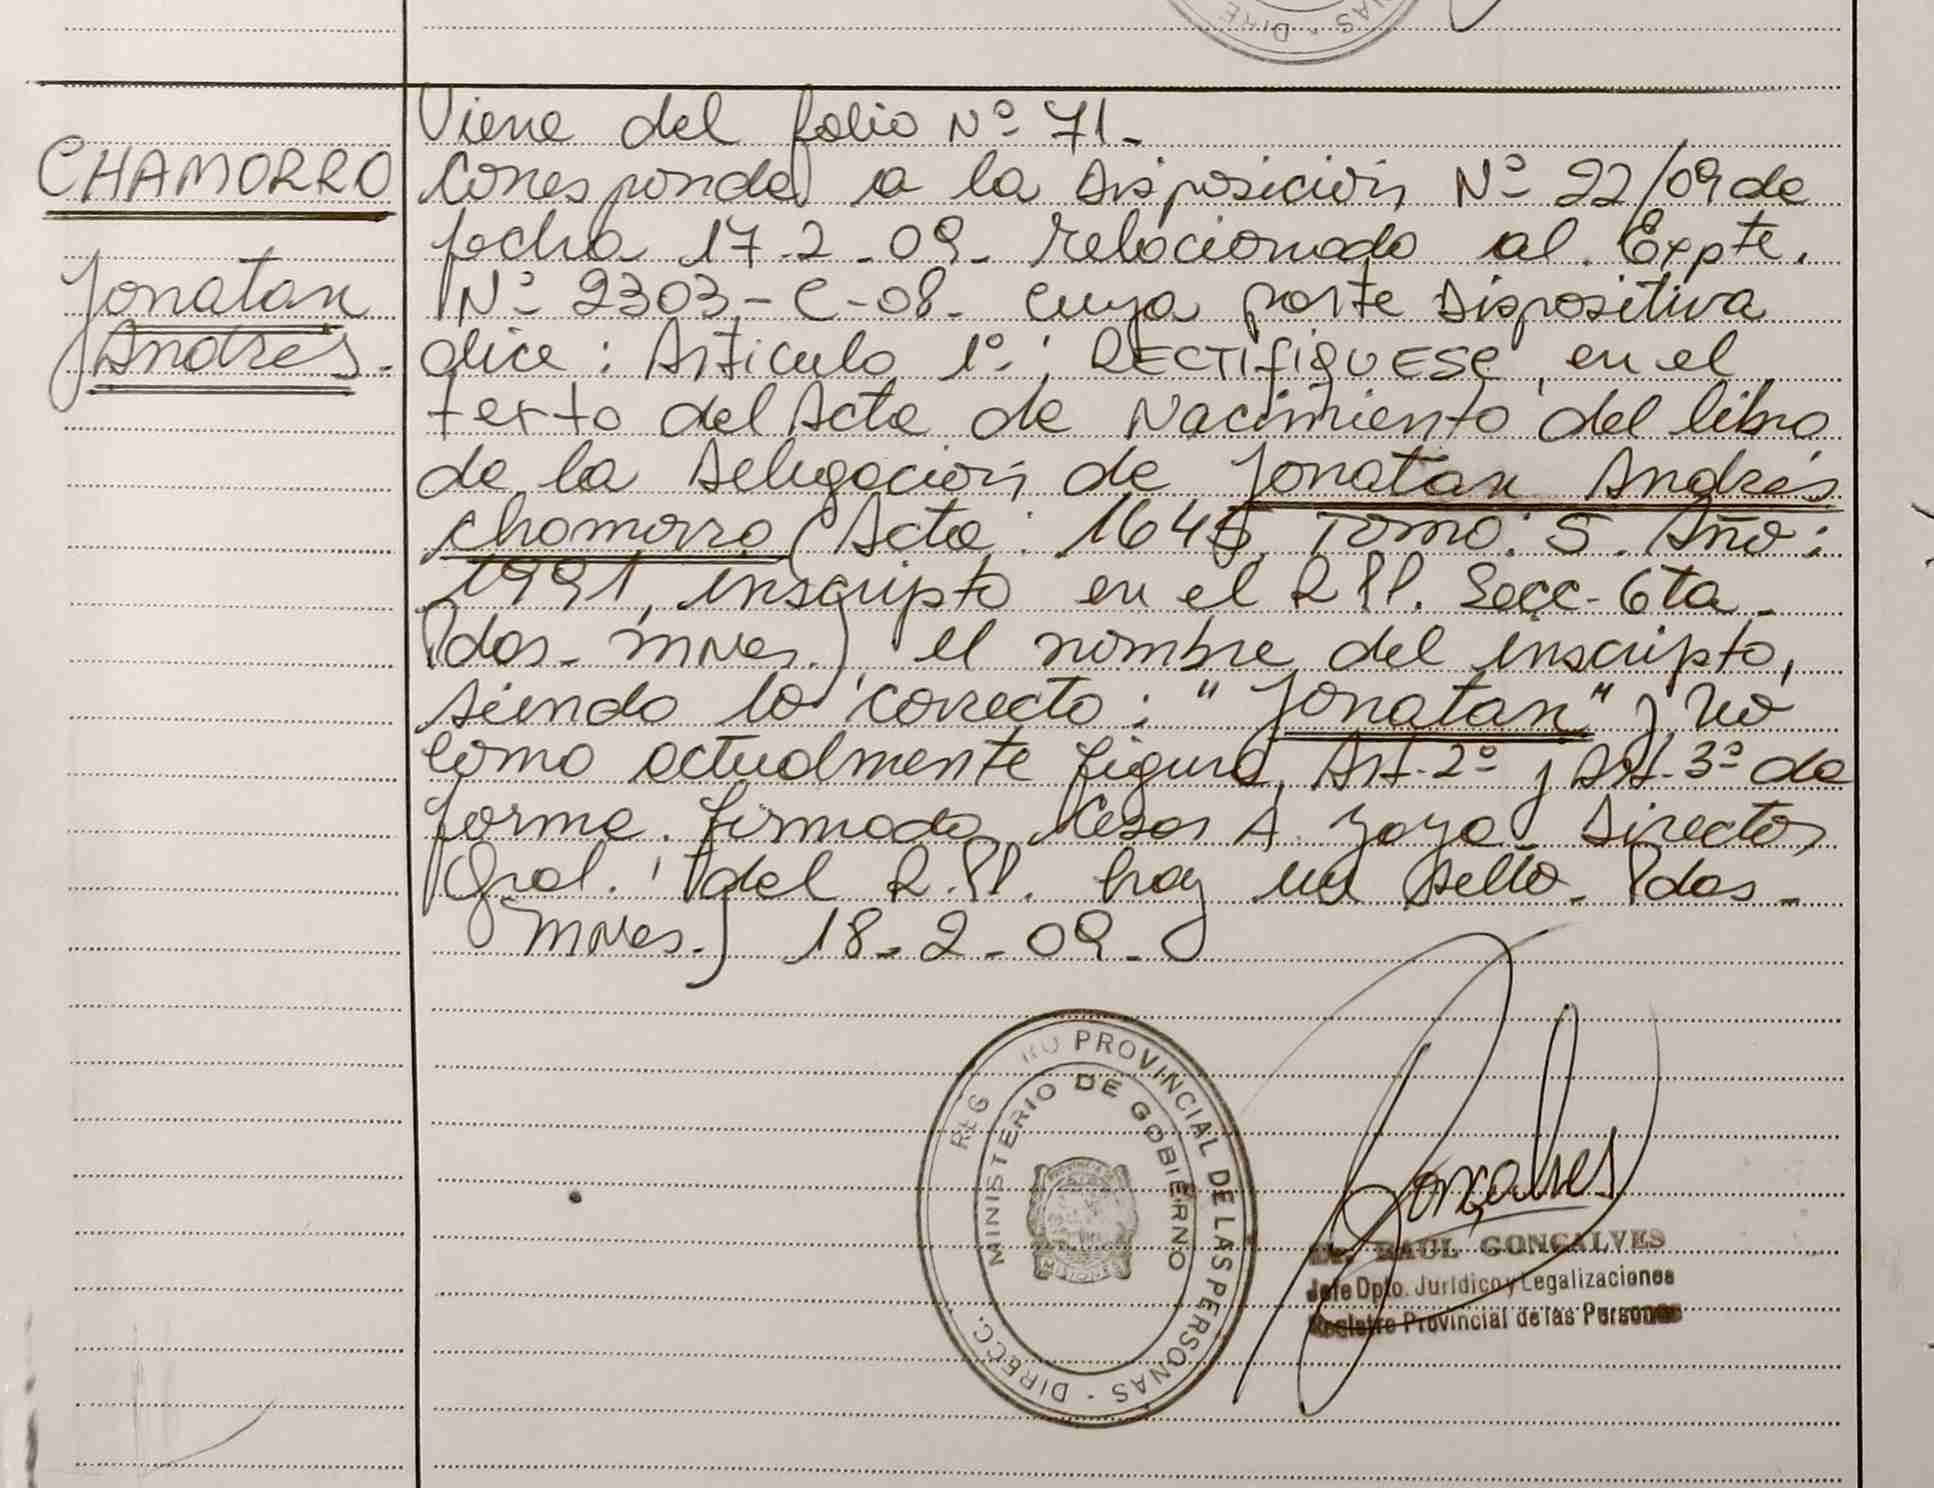 CHAMORRO
Jonatan
Andrés.
Viene del folio Nº 71-
Corresponde a la Disposición Nº 22/09 de
fecha 17-2-09- relacionado al Expte.
Nº 2303-C-08- cuya parte Dispositiva
dice: Artículo 1º: RECTIFIQUESE, en el
texto del Acta de Nacimiento del libro
de la Delegación de Jonatan Andrés
Chamorro (Acta: 1645 Tomo: 5. Año:
1991, inscripto en el RPP. Secc- 6ta-
Pdas- Mnes.) el nombre del inscripto,
siendo lo correcto: "Jonatan" y no
como actualmente figura, Art. 2º y Art. 3º de
forma. firmado Cesar A. Director
Gral. del R.PP. hay un sello- Pdas-
Mnes.) 18-2-09-
DIRECC. REG RO PROVINCIAL DE LAS PERSONAS -
MINISTERIO DE GOBIERNO
Gonçalves
RAUL GONÇALVES
Jefe Dpto. Jurídico y Legalizaciones
Registro Provincial de las Personas